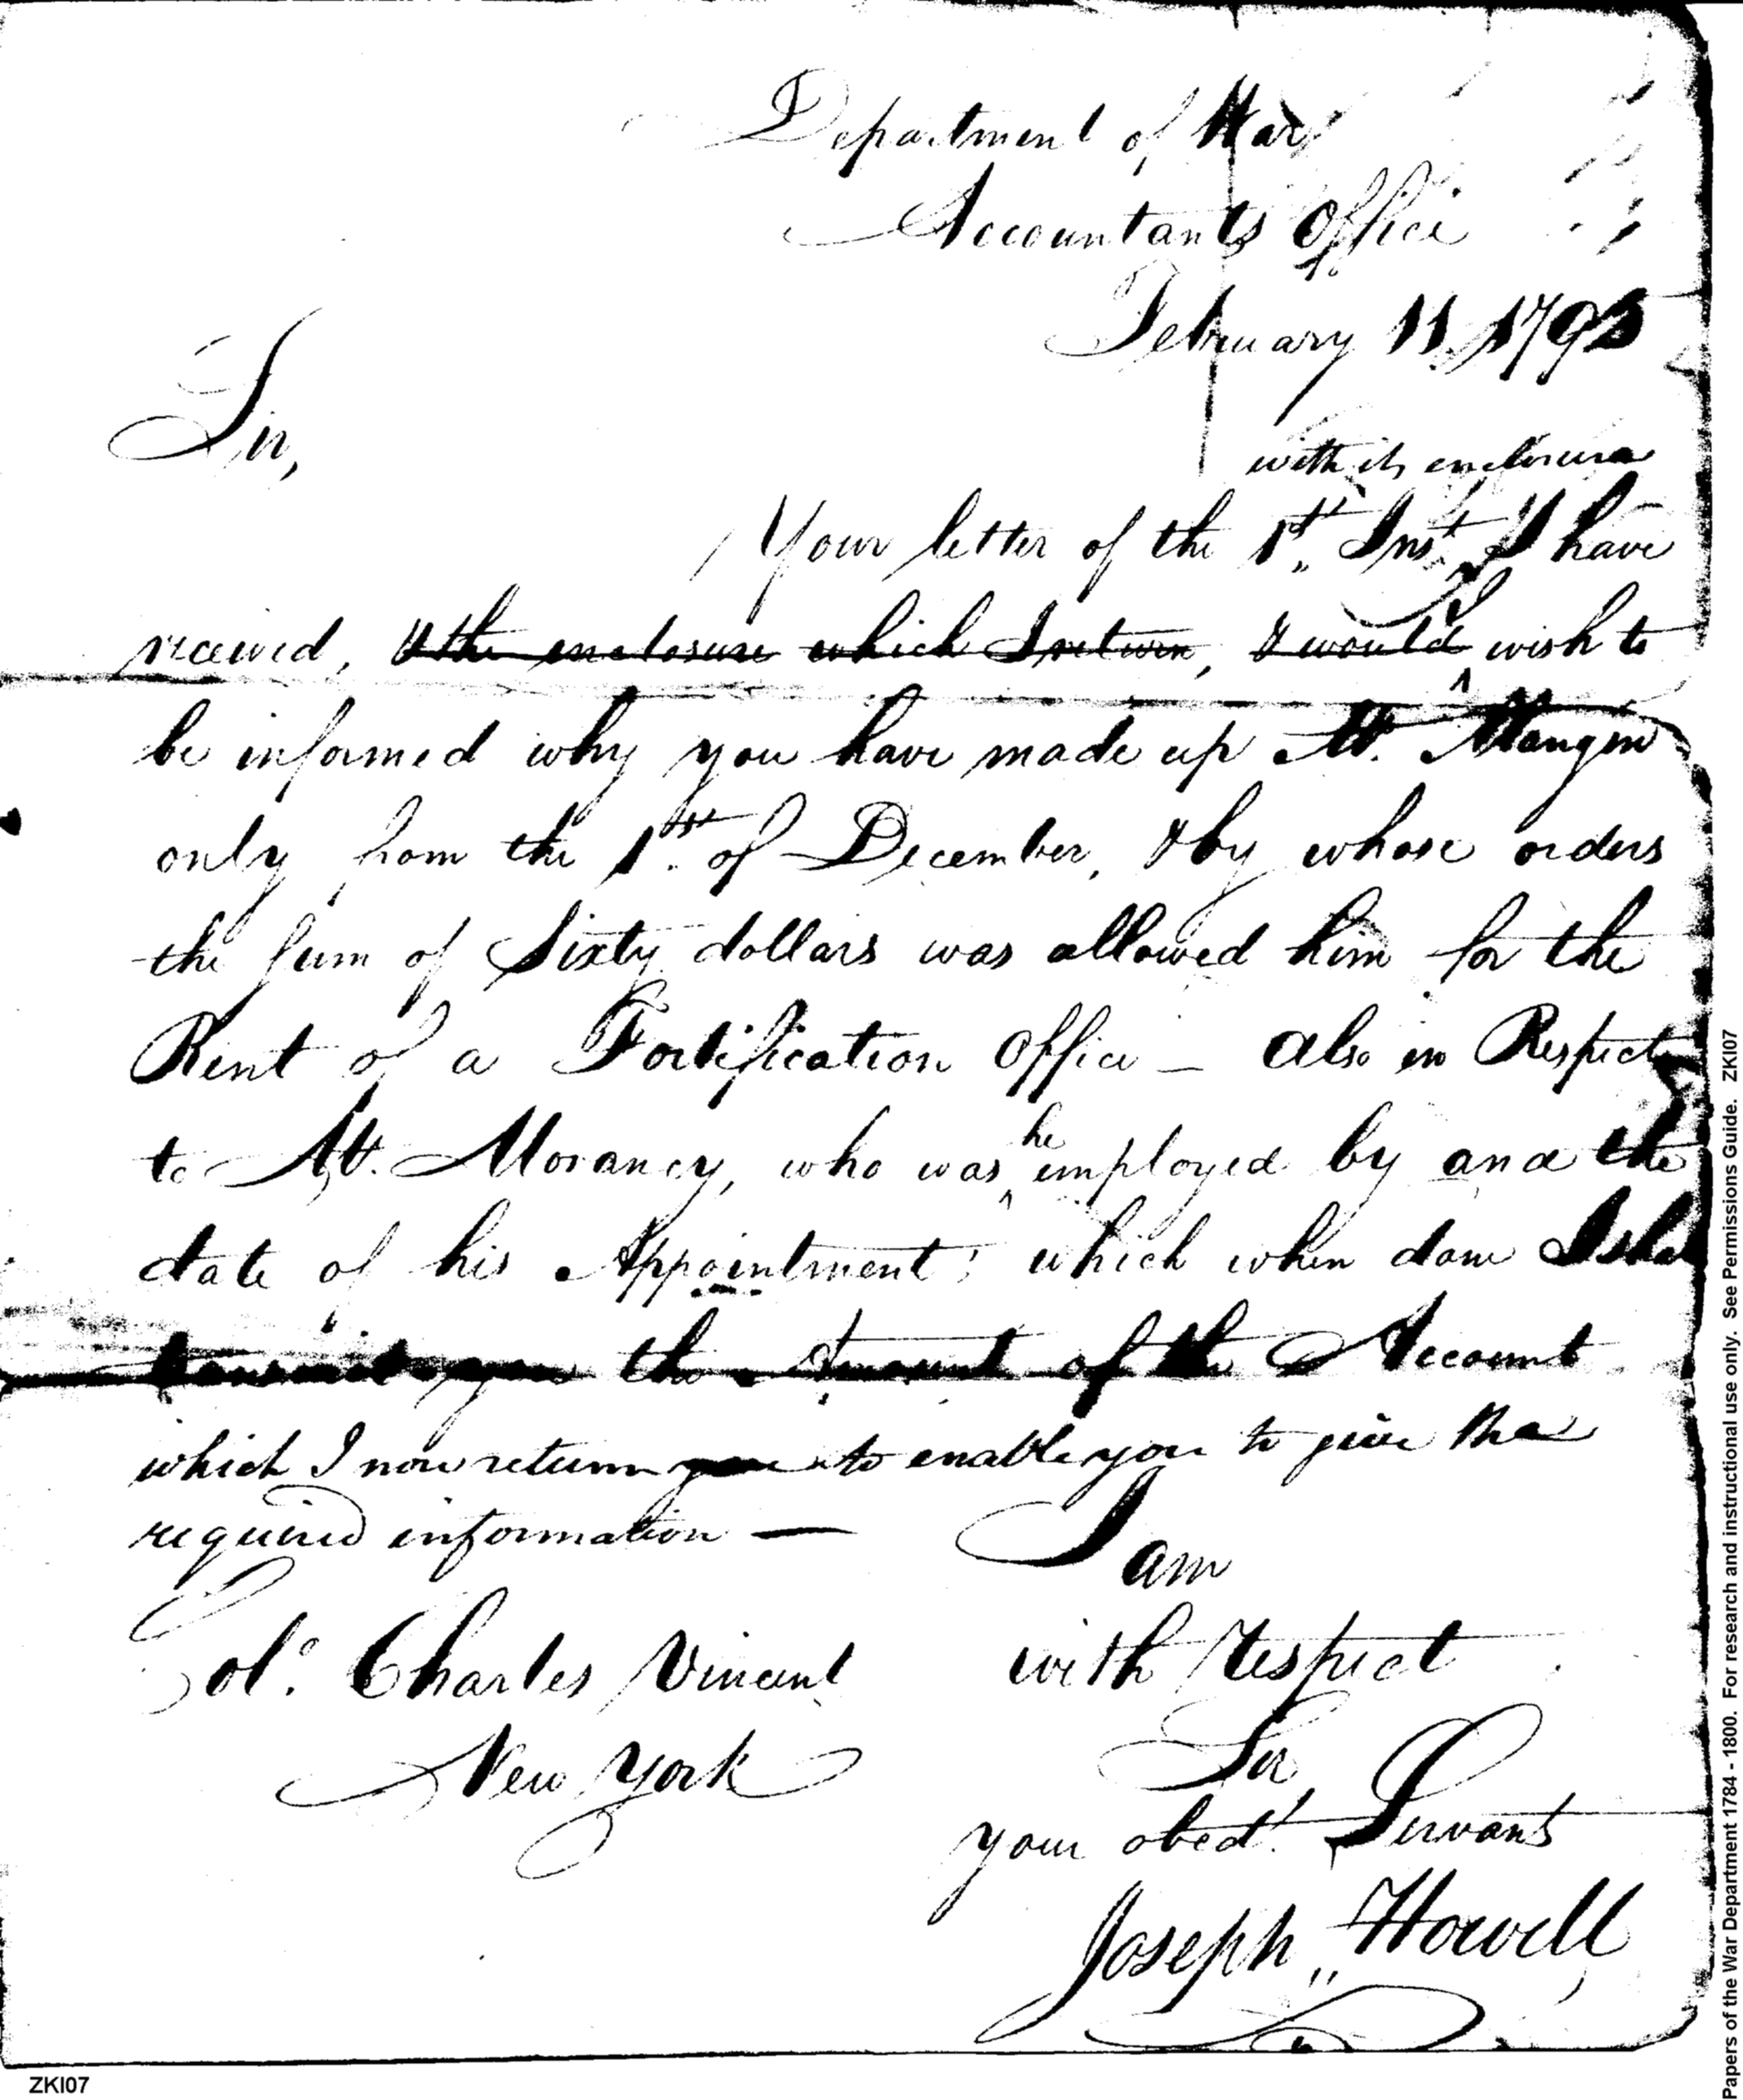 Department of War
Accountants Office
February 11, 1795
Sir,
with its enclosure
Your letter of the 1st Inst. I have
received, & the enclosure which I return, I would I wish to
be informed why you have made up Mr. Mangin
only from the 1st of December, & by whose orders
the sum of Sixty dollars was allowed him for the
Rent of a Fortification Office – also in Respect
to Mr. Morancy, who was he employed by and the
date of his Appointment; which when done I shal
transmit you the Amount of the Account
which I now return you to enable you to give the
required information —
I am
Col. Charles Vincent
with respect
New York
Sir
your obedt. Servant
Joseph Howell
ZKI07
Papers of the War Department 1784 - 1800. For research and instructional use only. See Permissions Guide. ZKI07